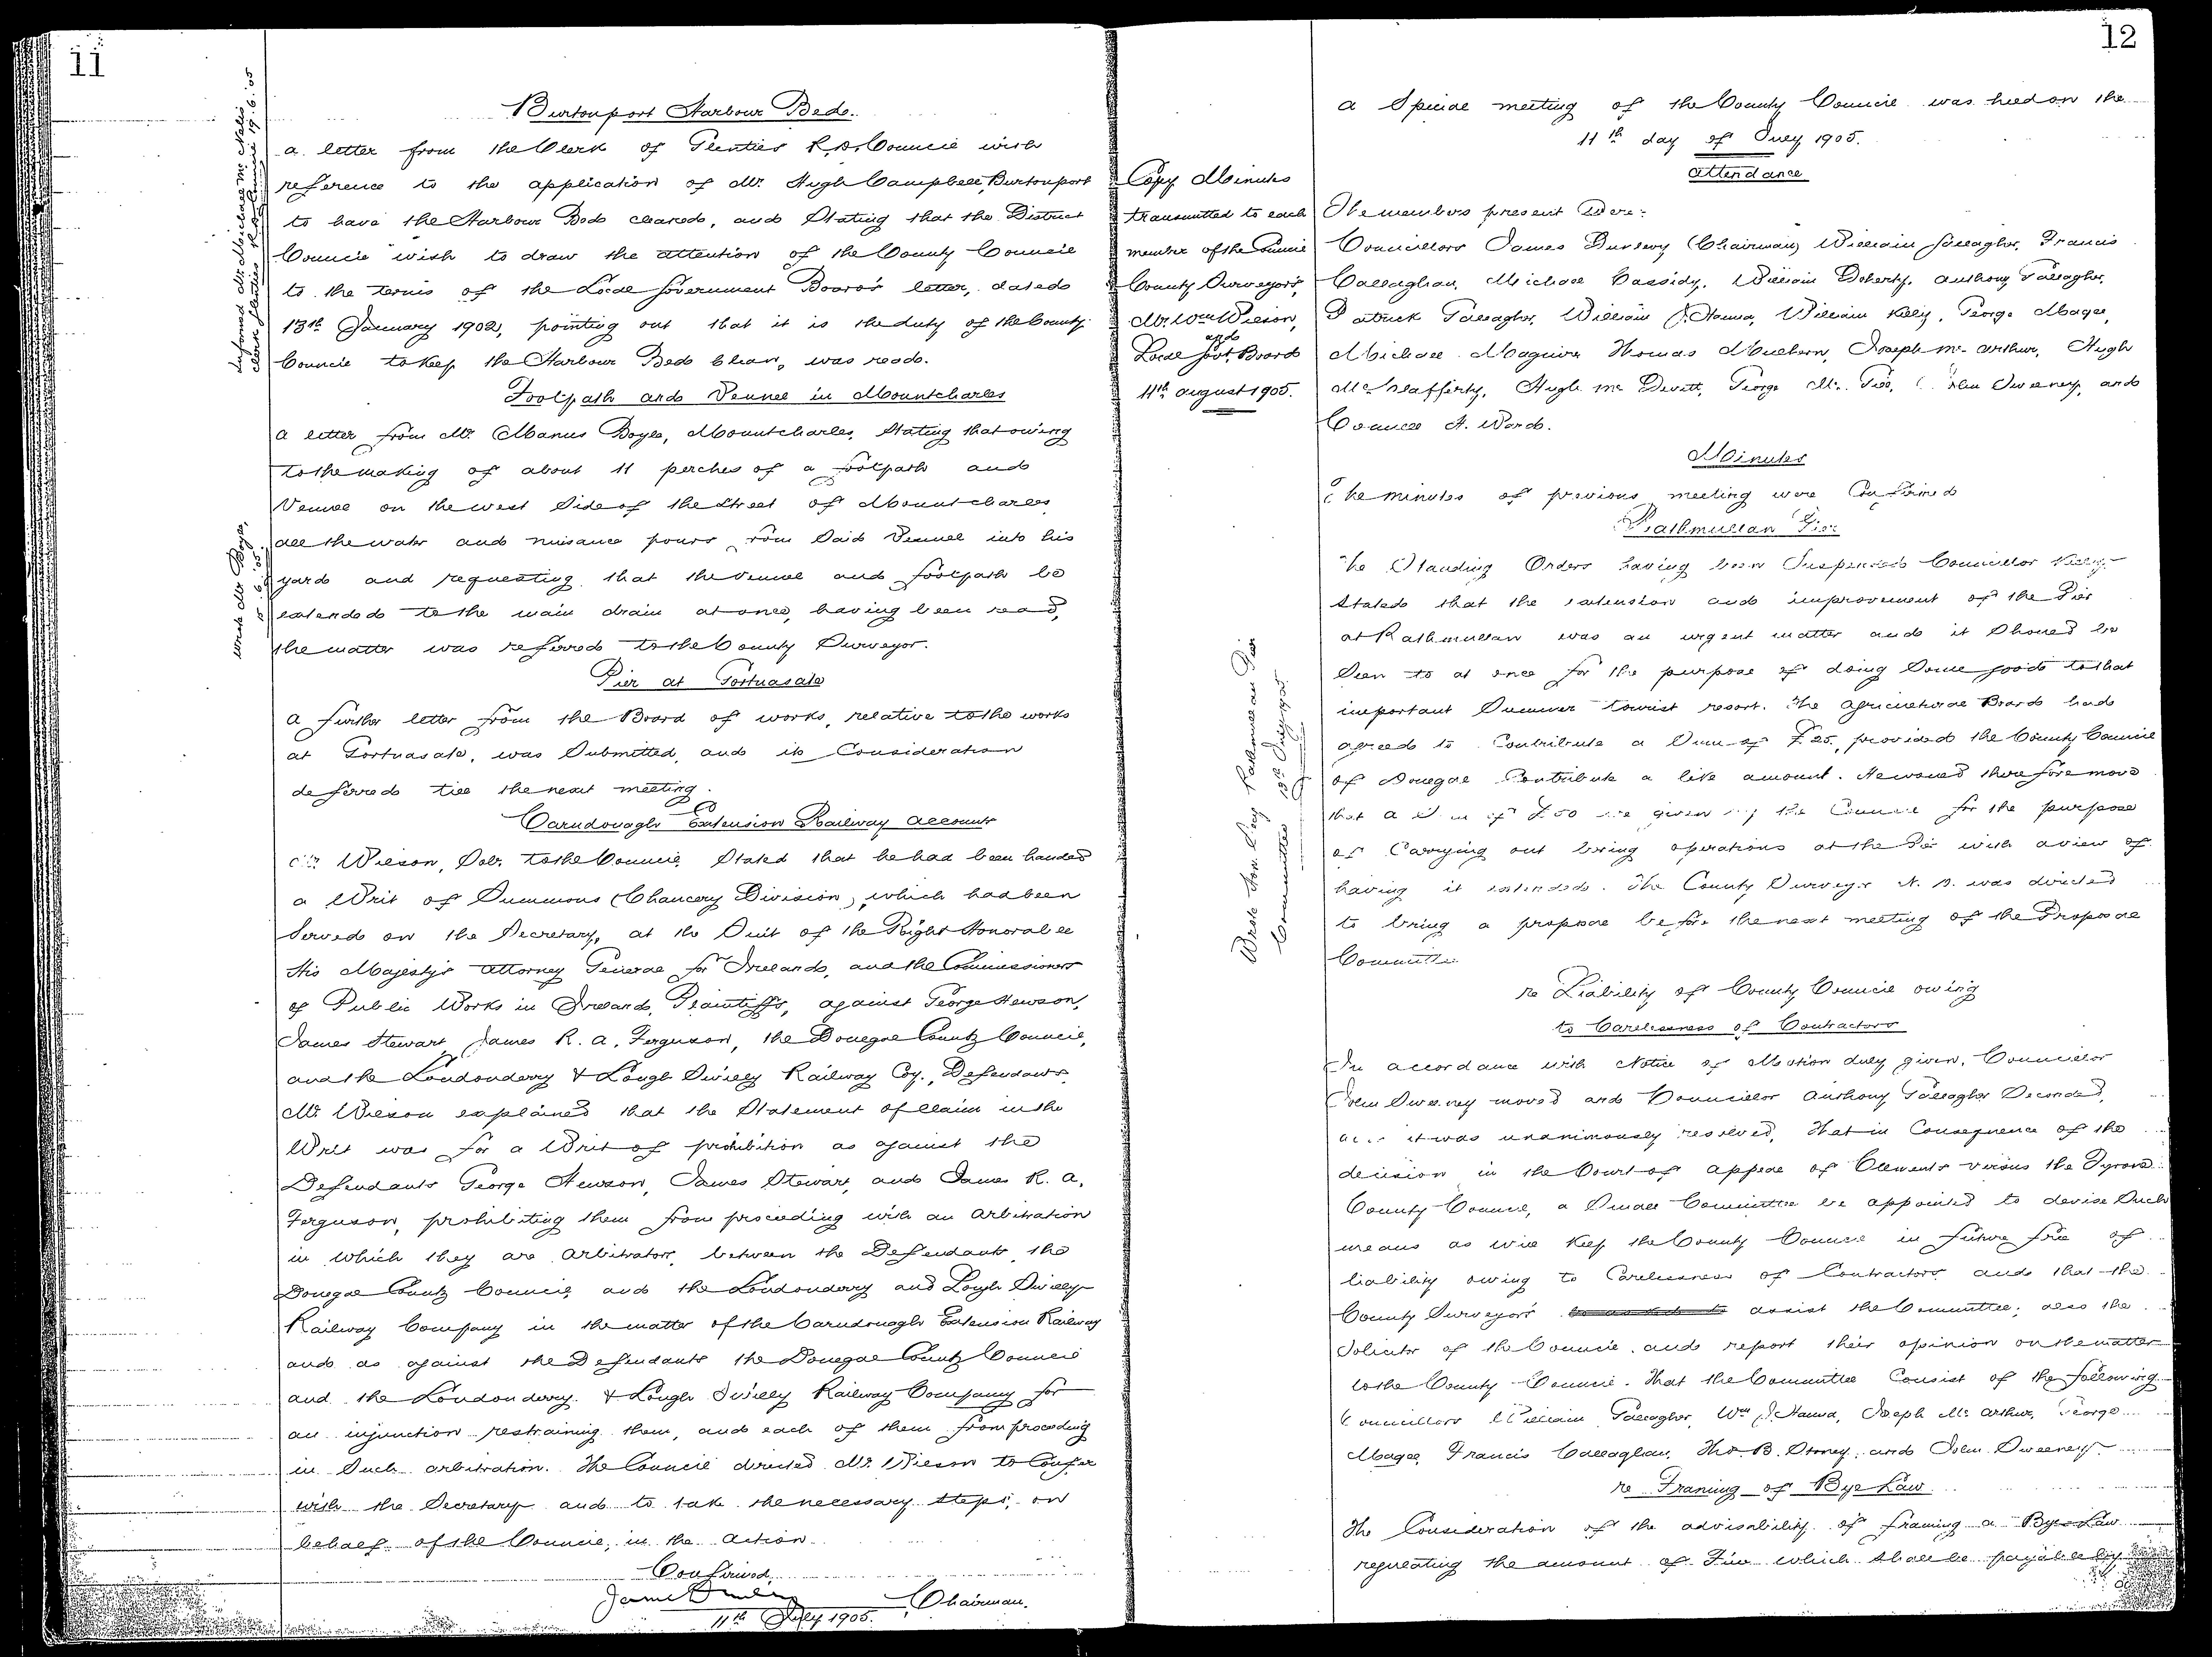 11
Informed Mr. Michael Mc. Nelis
Clerk Glenties R.D. Council 19.6.05
Burtonport Harbour Beds.
A letter from the Clerk of Glenties R.D. Council with
reference to the application of Mr. Hugh Campbell, Burtonport
to have the Harbour Beds cleaned, and Stating that the District
Council wish to draw the attention of the County Council
to the terms of the Local Government Board's letter, dated
13th January 1902, pointing out that it is the duty of the County
Council to keep the Harbour Beds Clean, was read.
Footpath and Vennel in Mountcharles
Wrote Mr Boyle,
A letter from Mr. Manus Boyle, Mountcharles, Stating that owing
to the making of about 11 perches of a footpath and
Vennel on the west Side of the Street of Mountcharles
all the water and nuisance pours from Said Vennel into his
yard and requesting that the vennel and footpath be
extended to the main drain at once, having been read,
the matter was referred to the County Surveyor.
Pier at Portnasale
A further letter from the Board of works, relative to the works
at Portnasale, was Submitted, and its Consideration
deferred till the next meeting.
Carndonagh Extension Railway Account
Mr. Wilson, Solr. to the Council, Stated that he had been handed
a Writ of Summons (Chancery Division), which had been
Served on the Secretary, at the Suit of the Right Honorable
His Majesty's Attorney General for Ireland, and the Commissioners
of Public Works in Ireland, Plaintiffs, against George Hewson,
James Stewart, James R. A. Ferguson, the Donegal County Council,
and the Londonderry & Lough Swilly Railway Coy., Defendants.
Mr. Wilson explained that the Statement of Claim in the
Writ was for a Writ of prohibition as against the
Defendants George Hewson, James Stewart, and James R. A.
Ferguson, prohibiting them from proceeding with an Arbitration
in which they are Arbitrators, between the Defendants, the
Donegal County Council, and the Londonderry and Lough Swilly
Railway Company in the matter of the Carndonagh Extension Railway
and as against the Defendants the Donegal County Council
and the Londonderry & Lough Swilly Railway Company for
an injunction restraining them, and each of them from proceeding
in Such arbitration. The Council directed Mr. Wilson to Confer
with the Secretary and to take the necessary steps, on
behalf of the Council, in the Action.
Confirmed,
Chairman.
11th July 1905.
12
A Special meeting of the County Council was held on the
11th day of July 1905.
Attendance
Copy Minutes
transmitted to each
member of the Council
County Surveyors,
Mr. Wm Wilson,
and
Local Govt. Board
11th August 1905.
The members present Were:
Councillors James Dunlevy (Chairman) William Gallagher, Francis
Callaghan, Michael Cassidy, William Doherty, Anthony Gallagher,
Patrick Gallagher, William J. Hanna, William Kelly, George Magee,
Michael Maguire Thomas Mulhern, Joseph Mc. Arthur, Hugh
Mc Clafferty, Hugh Mc Devitt, George Mc. Gee, John Sweeney, and
Connell A. Ward.
Minutes
The minutes of previous meeting were Confirmed
Rathmullan Pier
Wrote Hon. Secy Rathmullan Pier
Committee 13th July 1905
The Standing Orders having been Suspended Councillor Kelly
Stated that the extension and improvement of the Pier
at Rathmullan was an urgent matter and it Should be
Seen to at once for the purpose of doing Some good to that
important Summer tourist resort. The Agricultural Board had
agreed to Contribute a Sum of £25, provided the County Council
of Donegal Contribute a like amount. He would therefore move
that a Sum of £50 be given by the Council for the purpose
of Carrying out boring operations at the Pier with a view of
having it extended. The County Surveyor N. D. was directed
to bring a proposal before the next meeting of the Proposal
Committee.
re Liability of County Council owing
to Carelessness of Contractors
In accordance with Notice of Motion duly given, Councillor
John Sweeney moved and Councillor Anthony Gallagher Seconded,
and it was unanimously resolved, That in Consequence of the
decision in the Court of Appeal of Clements versus the Tyrone
County Council, a Small Committee be appointed to devise Such
means as will keep the County Council in future free of
liability owing to Carelessness of Contractors and that the
County Surveyors assist the Committee; also the
Solicitor of the Council, and report their opinion on the matter
to the County Council. That the Committee Consist of the following
Councillors William Gallagher, Wm J. Hanna, Joseph Mc. Arthur, George
Magee, Francis Callaghan, Thos. B. Stoney, and John Sweeney
re Framing of Bye Law
The Consideration of the advisability of framing a Bye-Law
regulating the amount of Fine which Shall be payable by